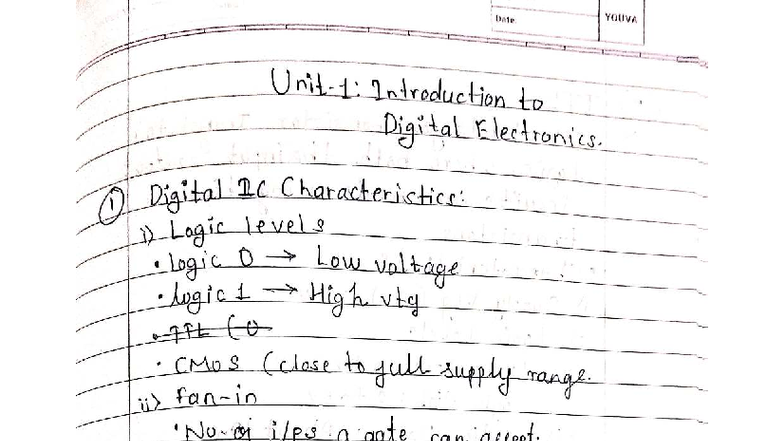 Date
YOUVA
Unit-1: Introduction to
Digital Electronics.
① Digital IC Characteristics:
i) Logic levels
• logic 0 → Low voltage
• logic 1 → High vtg
• TTL (0
• CMOS (close to full supply range.
ii) fan-in
• No. of i/ps a gate can accept.